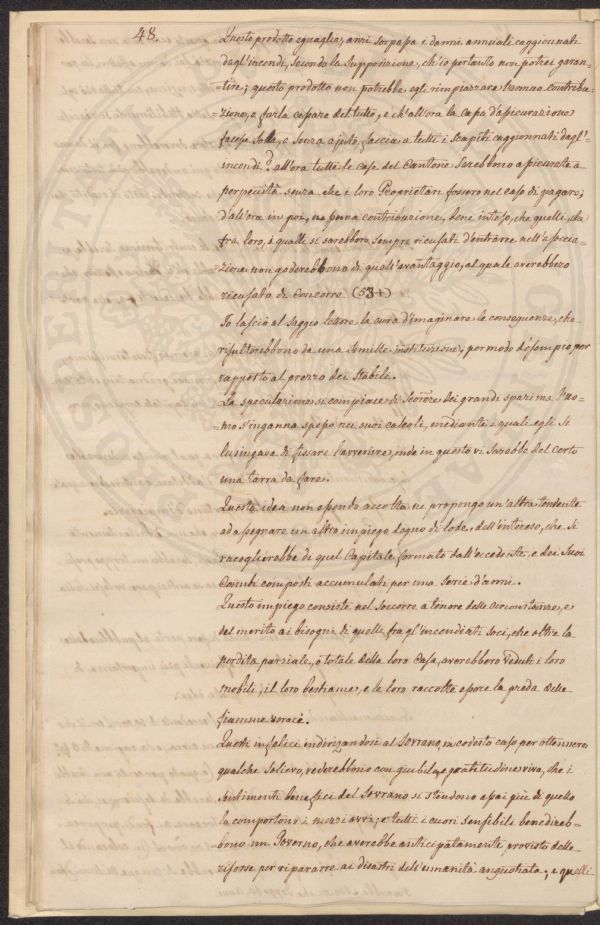 48.
Questo prodotto eguaglia, anzi sorpassa i danni annuali caggionnati
dagl'incendi, secondo la supposizione, ch'io pertanto non potrei garan-
=tire; questo prodotto non potrebbe egli rimpiazzare l'annua contribu-
=zione, e farla cessare del tutto, e ch'all'ora la Cassa d'assicurazione
facesse sola, e senza ajuto, faccia a tutti i scapiti caggionnati dagl'
incendi? all'ora tutte le case del Cantone sarebbono assicurate a
perpetuità senza che i loro Proprietari fossero nel caso di pagare,
d'all'ora in poi, nessuna contribuzione, bene inteso, che quelli, che
fra loro, i quali si sarebbero sempre ricusati d'entrare nell'associa-
=zione non goderebbono di quest'avantaggio, al quale averebbero
ricusato di concorre (53+)
Io lascio al saggio lettore la cura d'imaginare le conseguenze, che
risultorebbono da una simille instituzione, per modo d'esempio, per
rapporto al prezzo dei stabili.
La speculazione si compiace di scorrere dei grandi spazi ma l'uo-
=mo s'inganna spesso nei suoi calcoli, mediante i quali egli si
lusingava di fissare l'avvenire, onde in questo vi sarebbe del certo
una tarra da fare.
Questa idea non essendo accolta ne propongo un'altra tendente
ad assegnare un altro impiego degno di lode, dell'interesse, che si
racoglierebbe di quel Capitale formato dall'eccedente, e dei suoi
Cambi composti accumulati per una serie d'anni.
Questo impiego consiste nel soccorre a tenore delle circonstanze, e
del merito ai bisogni di quelli fra gl'incendiati soci, che oltre la
perdita parziale, o totale della loro Casa, averebbero veduti i loro
mobili, il loro bestiame, e le loro raccolte essere la preda delle
fiamme vorace.
Questi infelici indirizandosi al Sovrano, in codesto caso per ottennere
qualche solievo, vederebbono con giubilo, e gratitudine viva, che i
sentimenti benefici del Sovrano si stendono assai più di quello
la comportono i mezzi avvi; e tutti i cuori sensibili benedireb-
=bono un Governo, che averebbe anticipatamente provisto delle
risorse per ripararre ai disastri dell'umanità angustiata; e quelli